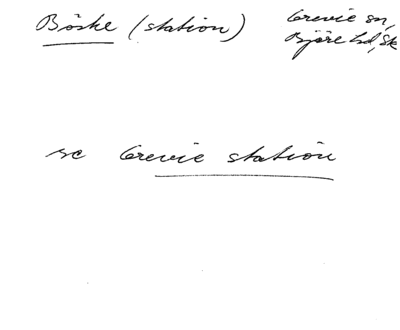 Böske (station)
Grevie sn,
Bjäre hd, Sk
se Grevie station